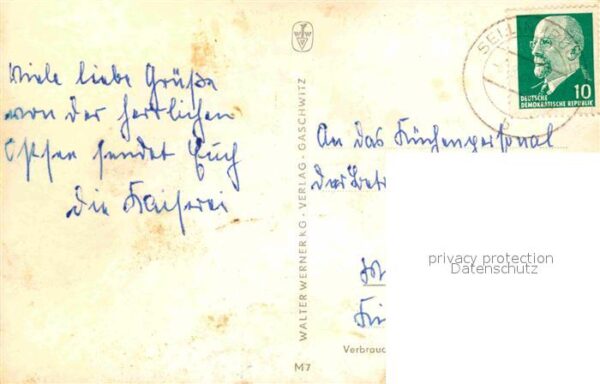 Viele liebe Grüße
von der herrlichen
Ostsee sendet Euch
die Kaiserei
WALTER WERNER KG · VERLAG · GASCHWITZ
M7
SELLIN
10
DEUTSCHE
DEMOKRATISCHE REPUBLIK
An das Küchenpersonal
der
privacy protection
Datenschutz
Verbrauc